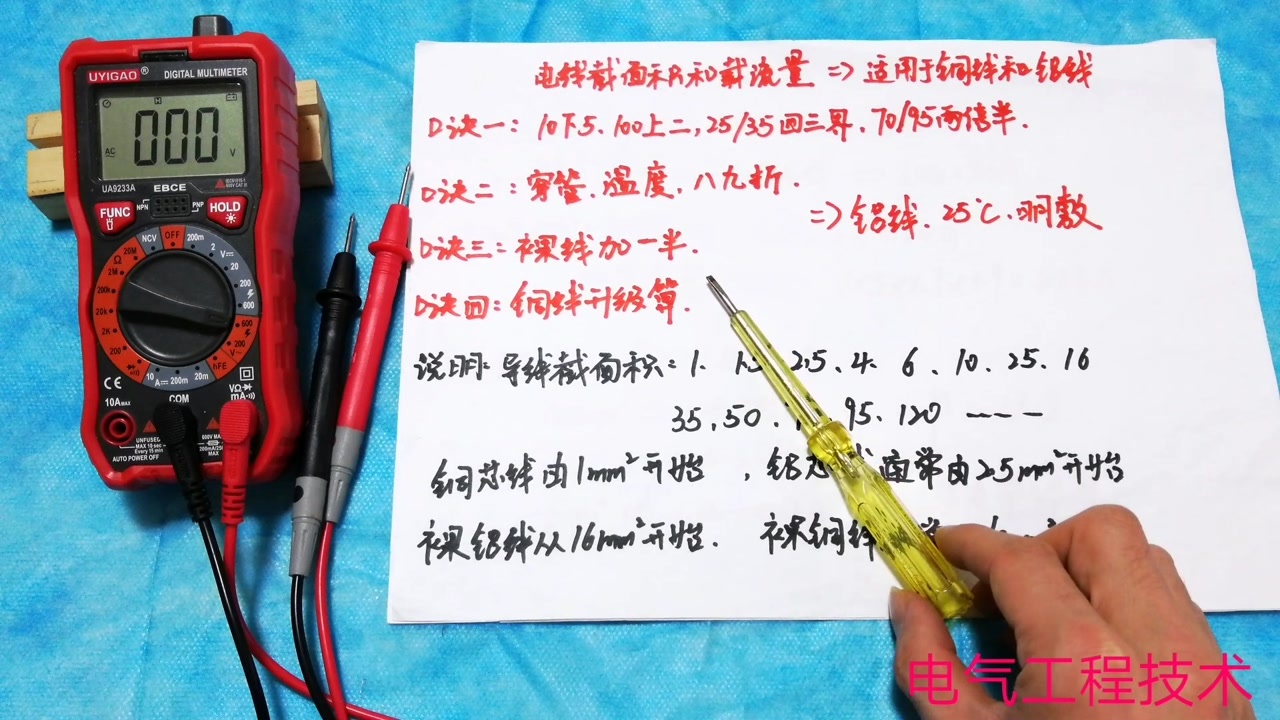 UYIGAO® DIGITAL MULTIMETER
AC 000 V
UA9233A EBCE
FUNC NPN PNP HOLD
NCV OFF 200m
Ω 20M 2 V
2M 20
200k 200
20k 600
2K 600
200 200 V~
hFE
10 A 200m 20m
CE COM VΩ
10A MAX mA
UNFUSED
MAX 10 sec
Every 15 min MAX
AUTO POWER OFF
电线截面积和载流量 => 适用于铜线和铝线
口诀一：10下5、100上二，25/35四三界、70/95两倍半.
口诀二：穿管、温度、八九折.
=> 铝线、25℃、明敷
口诀三：裸线加一半.
口诀四：铜线升级算.
说明：导线截面积：1、1.5 2.5、4、6、10、25、16
35、50、 95、120 ----
铜芯线由1mm²开始，铝芯线通常由2.5mm²开始
裸铝线从16mm²开始. 裸铜线
电气工程技术